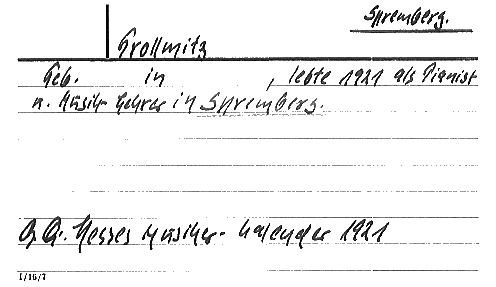 Spremberg.
Trollmitz
Geb. in , lebte 1921 als Pianist
u. Musik-Lehrer in Spremberg.
Hesses Musiker-Kalender 1921
1/16/7